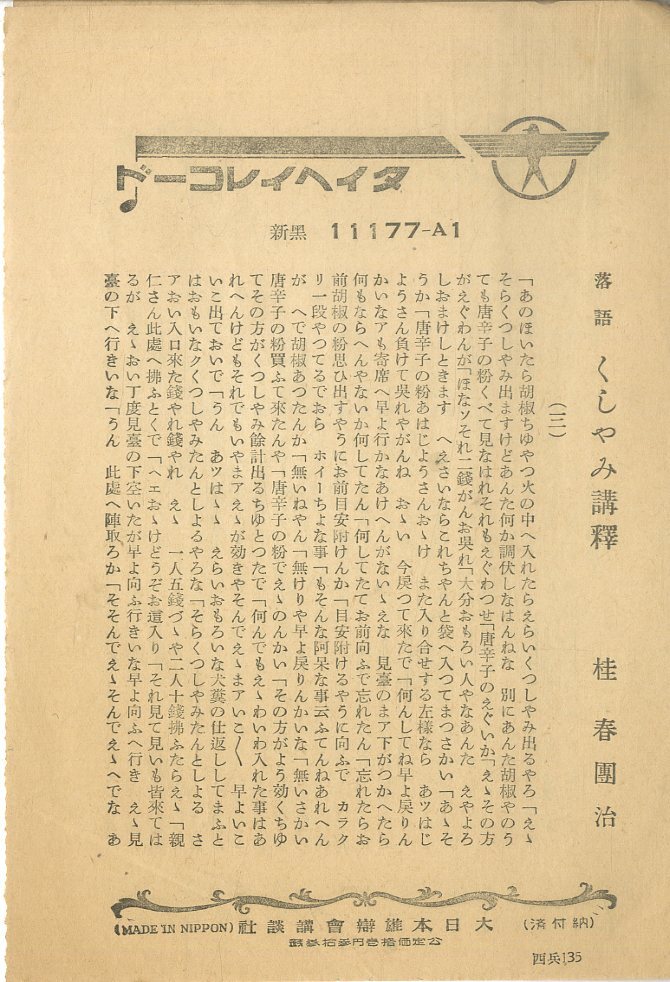 タイヘイレコード
新黑 11177-A1
落語 くしやみ講釋 桂春團治
(三)
「あのほいたら胡椒ちゆやつ火の中へ入れたらえらいくつしやみ出るやろ「えゝ
そらくつしやみ出ますけどあんた何か調伏しなはんねな 別にあんた胡椒やのう
ても唐辛子の粉くべて見なはれそれもえぐわつせ「唐辛子のえぐいか「えゝその方
がえぐわんが「ほなソそれ二錢がんお吳れ「大分おもろい人やなあんた えやよろ
しおまけしときます へえさいならこれちやんと袋へ入つてまつさかい「あゝそ
うか「唐辛子の粉あはじようさんおゝけ また入り合せする左樣なら あツはじ
ようさん負けて吳れやがんね おゝい 今戾つて來たで「何んしてね早よ戾りん
かいなアも寄席へ早よ行かなあけへんがないゝえな 見臺のまア下がつかへたら
何もならへんやないか何してたん「何してたてお前向ふで忘れたん「忘れたらお
前胡椒の粉思ひ出すやうにお前目安附けんか「目安附けるやうに向ふで カラク
リ一段やつてるでおら ホイーちよな事「もそんな阿呆な事云ふてんねあれへん
が へで胡椒あつたんか「無いねやん「無けりや早よ戾りんかいな「無いさかい
唐辛子の粉買ふて來たんや「唐辛子の粉でえゝのんかい「その方がよう効くちゆ
てその方がくつしやみ餘計出るちゆとつたで「何んでもえゝわいわ入れた事はあ
れへんけどもそれでもいやまアえゝが効きやそんでえゝまアいこ〱 早よいこ
いこ出ておいで「うん あツはゝゝ えらいおもろいな犬糞の仕返ししてまふと
はおもいなクくつしやみたんとしよるやろな「そらくつしやみたんとしよる さ
アおい入口來た錢やれ錢やれ えゝ 一人五錢づゝや二人十錢拂ふたらえゝ「親
仁さん此處へ拂ふとくで「へェおゝけどうぞお這入り「それ見て見いも皆來ては
るが えゝおい丁度見臺の下空いたが早よ向ふ行きいな早よ向ふへ行き えゝ見
臺の下へ行きいな「うん 此處へ陣取ろか「そそんでえゝそんでえゝへでな あ
(納付済) 大日本雄辯會講談社 (MADE IN NIPPON)
四兵135